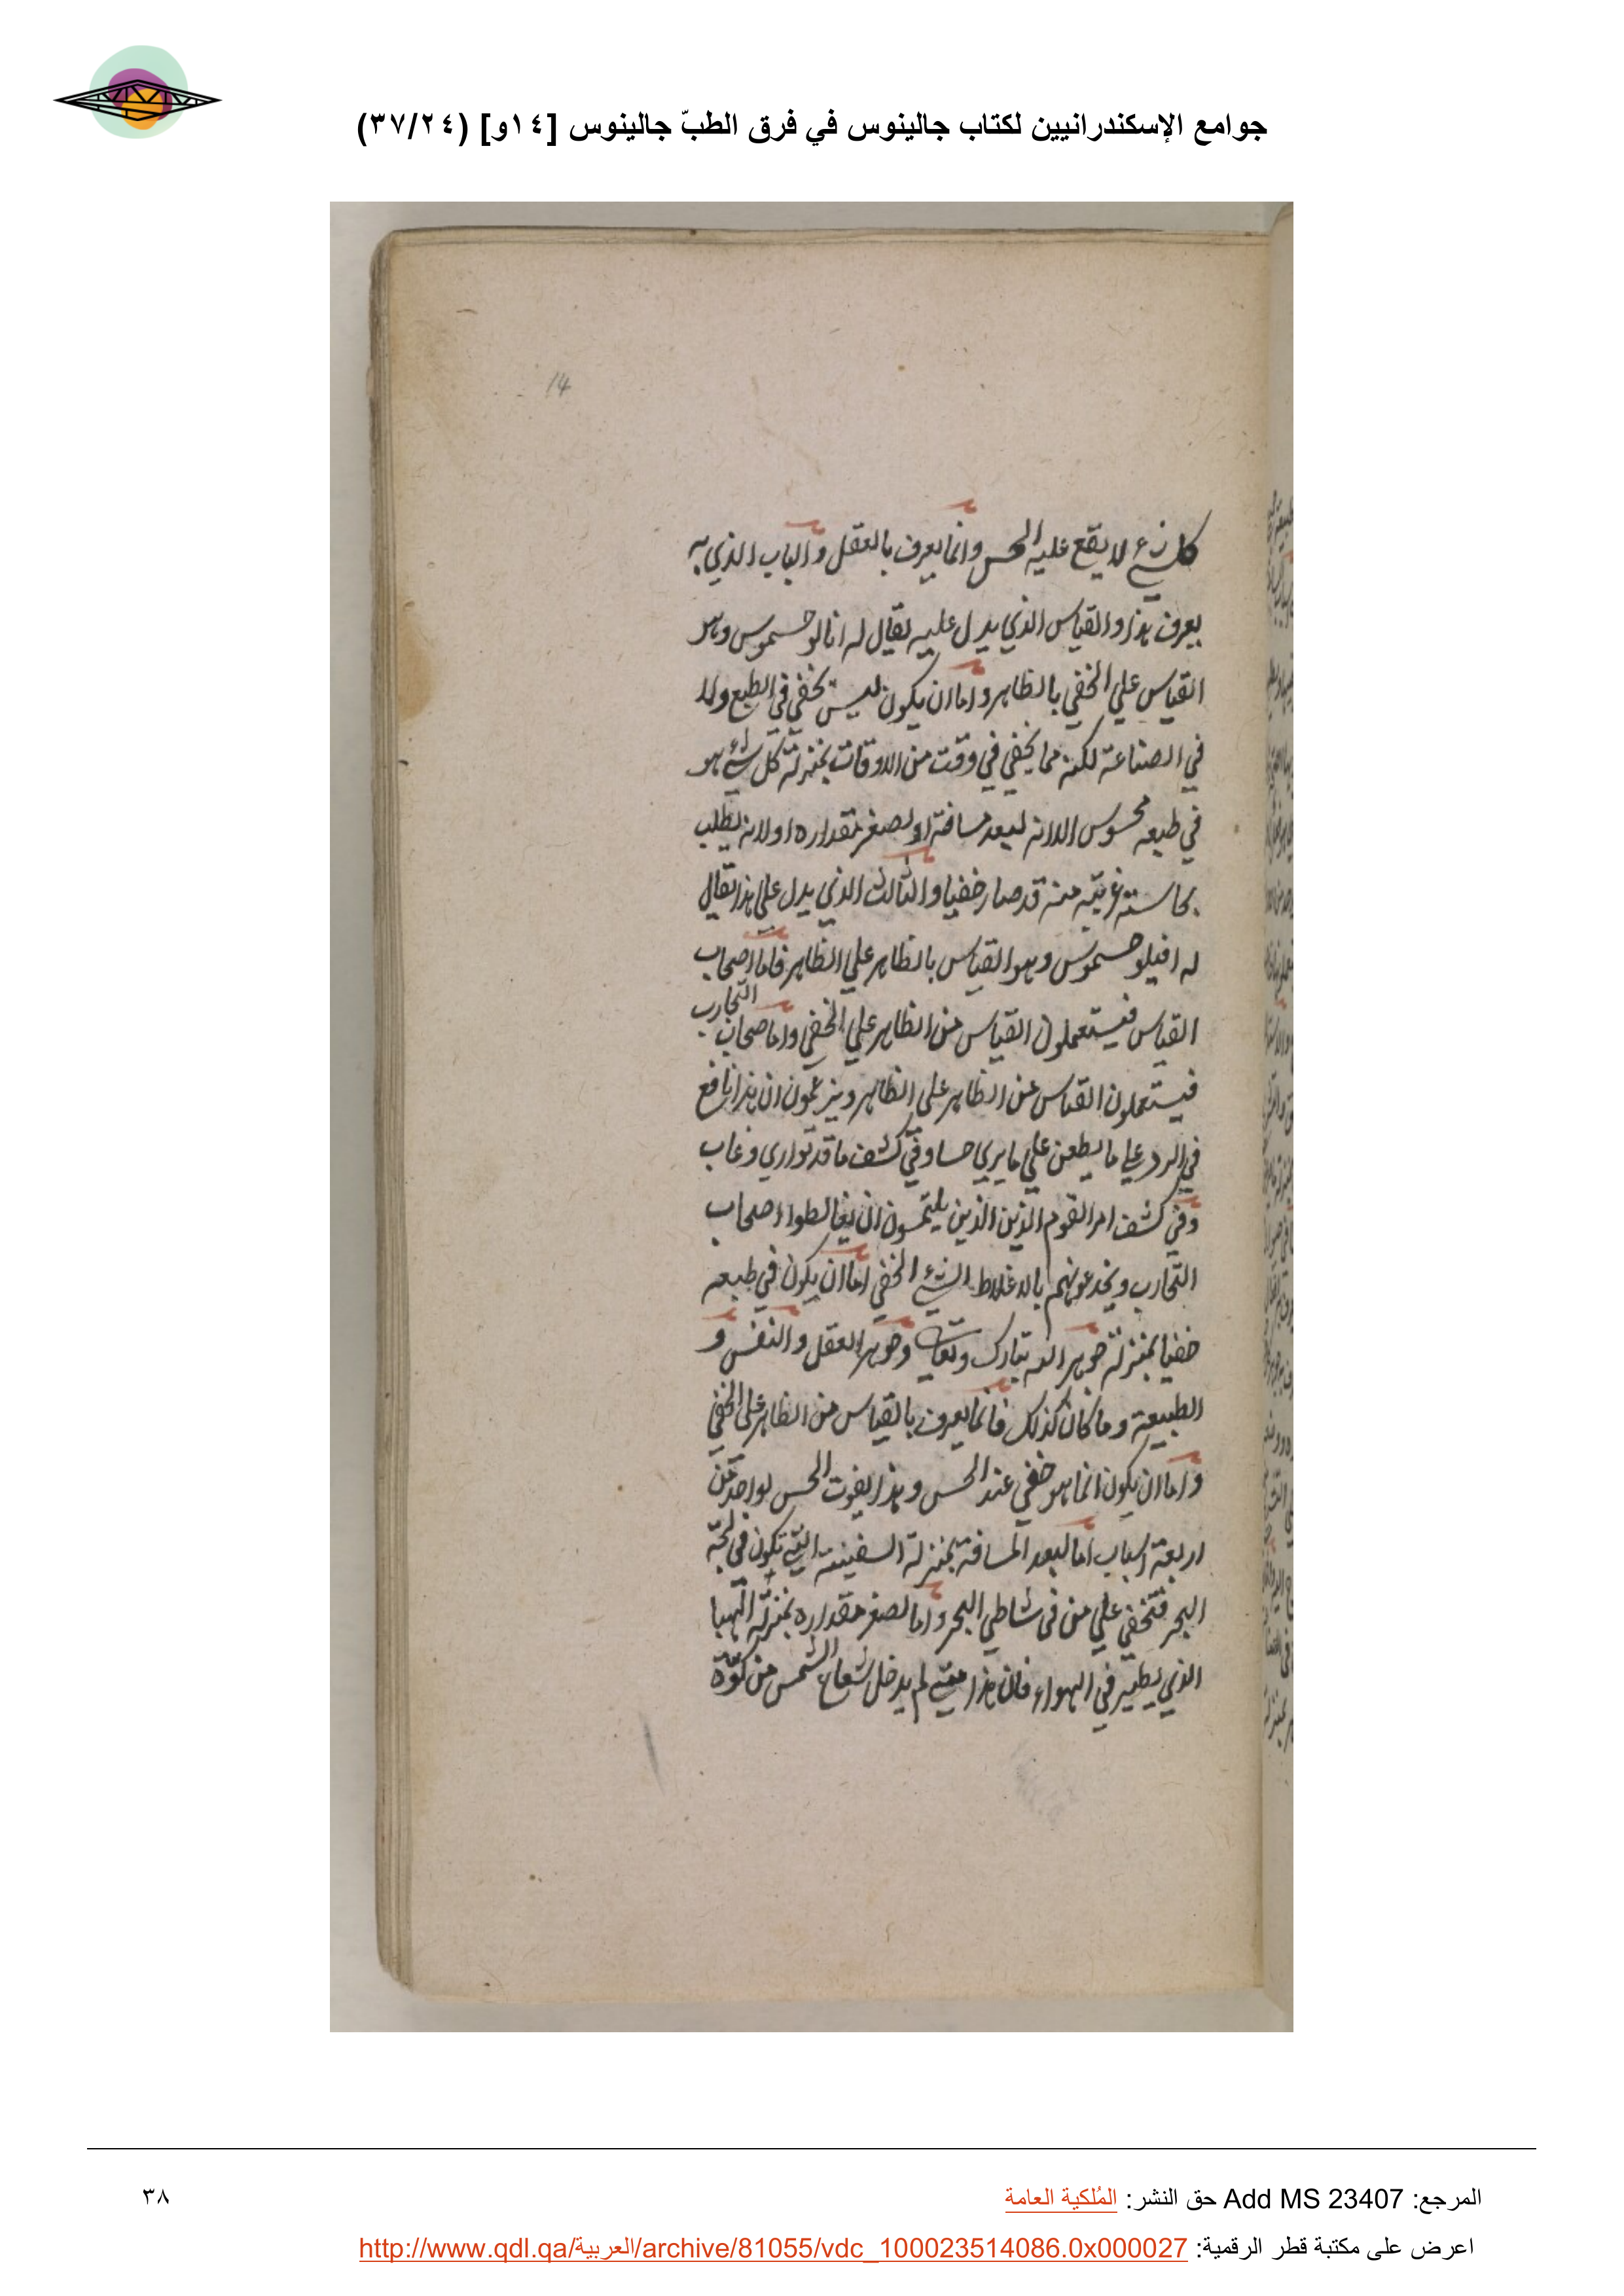 جوامع الإسكندرانيين لكتاب جالينوس في فرق الطبّ جالينوس [١٤و] (٣٧/٢٤)
14
كل شيء لا يقع عليه الحس وانما يعرف بالعقل والباب الذي به
يعرف هذا والقياس الذي يدل عليه يقال له انالوجسموس وهو
القياس علي الخفي بالظاهر واما ان يكون ليس بخفي في الطبع ولا
في الصناعة لكنه مما يخفي في وقت من الاوقات بمنزلة كل شئ هو
في طبعه محسوس الا انه لبعد مسافته او لصغر مقداره او لانه يطلب
بحاسته غريبه منه قد صار خفيا والثالث الذي يدل علي هذا يقال
له افيلوجسموس وهو القياس بالظاهر علي الظاهر فاما اصحاب
القياس فيستعملون القياس من الظاهر علي الخفي واما اصحاب التجارب
فيستعملون القياس من الظاهر علي الظاهر ويزعمون ان هذا نافع
في الرد علي ما يطعن علي ما يري حسا وفي كشف ما قد تواري وغاب
وفي كشف امر القوم الذين الذين يلتمسون ان يغالطوا اصحاب
التجارب ويخدعونهم بالاغلاط الشئ الخفي اما ان يكون في طبعه
خفيا بمنزلة جوهر الله تبارك وتعالي وجوهر العقل والنفس و
الطبيعة وما كان كذلك فانما يعرف بالقياس من الظاهر علي الخفي
واما ان يكون انما هو خفي عند الحس وهذا يفوت الحس لواحد من
اربعة اسباب اما لبعد المسافة بمنزلة السفينة التي تكون في لجة
البحر فتخفي علي من في شاطي البحر واما لصغر مقداره بمنزلة الهبا
الذي يطير في الهواء فان هذا متي لم يدخل شعاع الشمس من كوة
المرجع: Add MS 23407 حق النشر: المُلكية العامة
٣٨
اعرض على مكتبة قطر الرقمية: http://www.qdl.qa/العربية/archive/81055/vdc_100023514086.0x000027